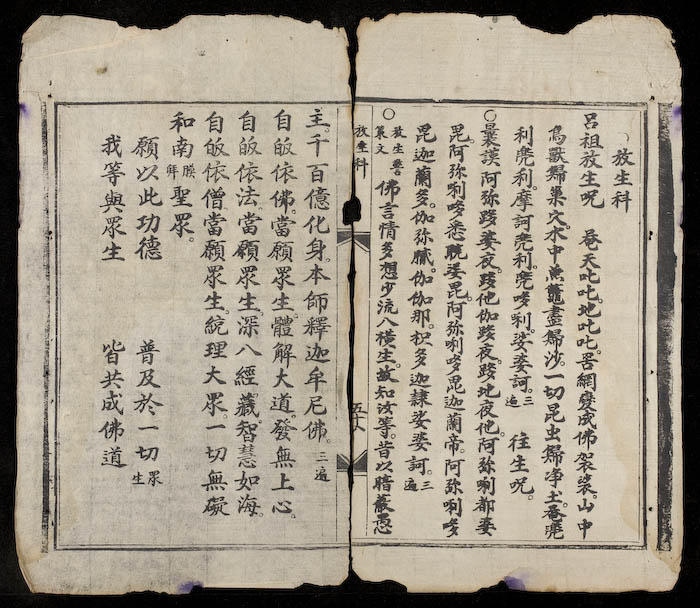 放生科
呂祖放生咒　菴天吒吒。地吒吒。苦網變成佛袈裟。山中
鳥獸歸巢穴。水中魚鼈盡歸沙。一切昆虫歸淨土。菴兜
利兜利。摩訶兜利。兜哆利。娑婆訶。三遍　往生咒。
〇曩謨阿弥跢婆夜。跢他伽跢夜。跢地夜他。阿弥唎都婆
毘。阿弥唎哆悉躭婆毘。阿弥唎哆毘迦蘭帝。阿弥唎哆
毘迦蘭多。伽弥膩。伽伽那。枳多迦隸娑婆訶。三遍
〇放生文　佛言情多想少流入橫生。故知汝等。昔以暗蔽愚
放生科　五十八
主。千百億化身。本師釋迦牟尼佛。三遍
自皈依佛。當願眾生。體解大道。發無上心。
自皈依法。當願眾生。深入經藏。智慧如海。
自皈依僧。當願眾生。統理大眾。一切無礙
和南聖眾。
願以此功德　普及於一切眾生
我等與眾生　皆共成佛道